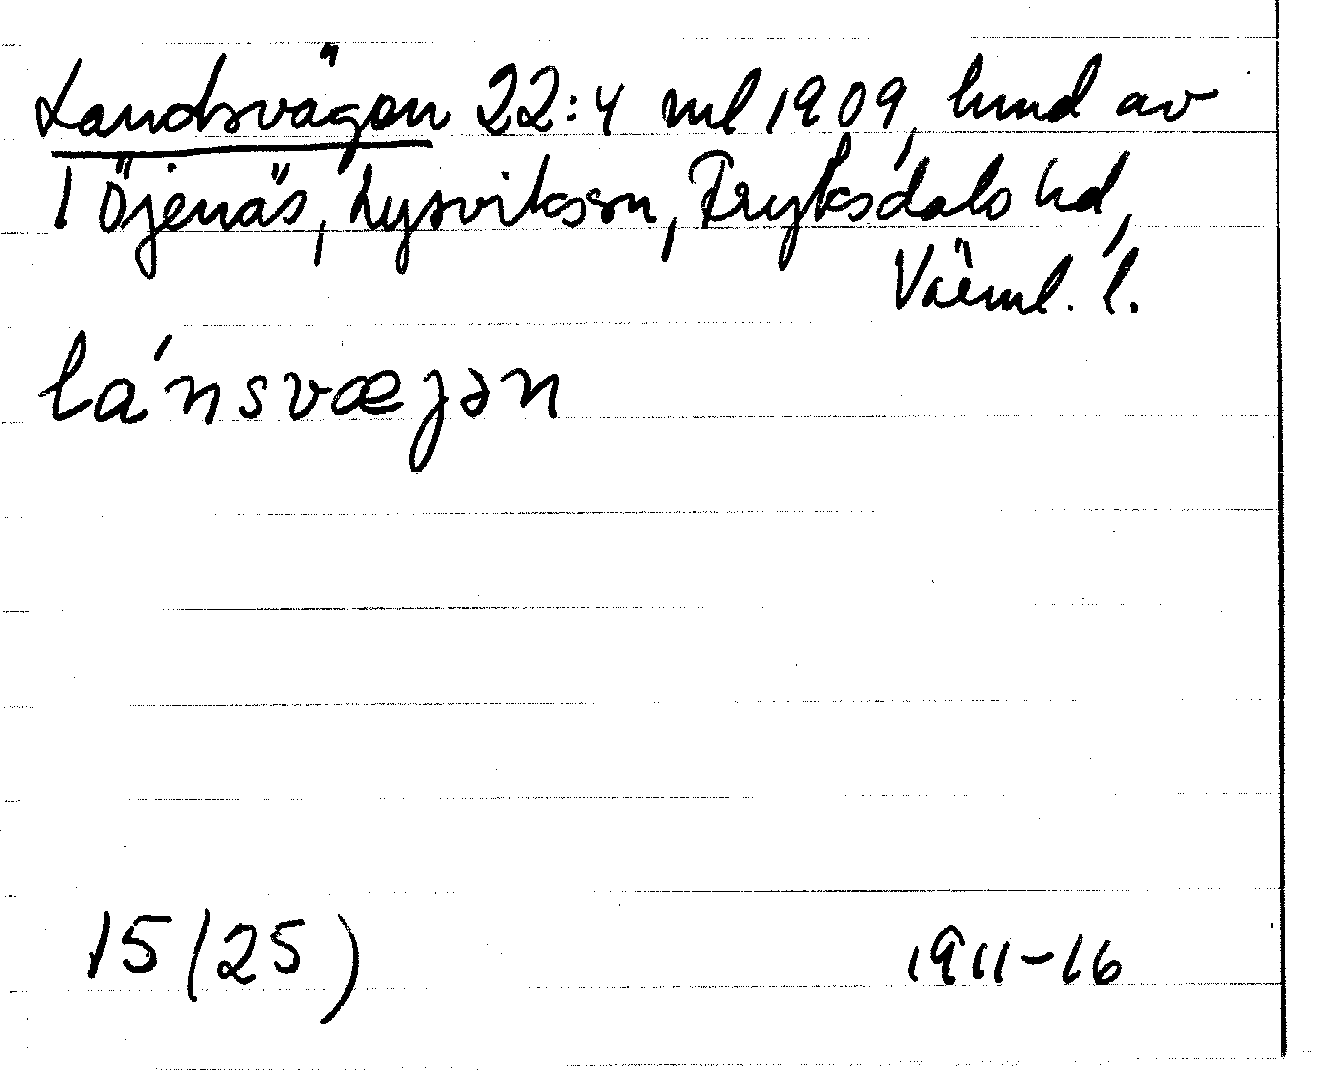 Landsvägen 22:4 ml 1909, hmd av
1 Öjenäs, Lysviks sn, Fryksdals hd,
Värml. l.
la´nsvæjən
15 (25)
1911-16